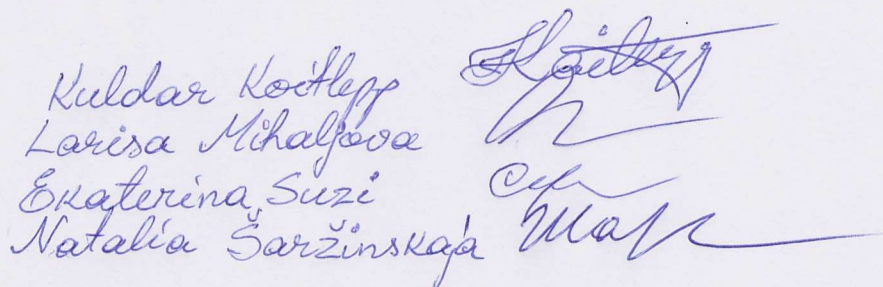 Kuldar Koitlepp
Larisa Mihaljova
Ekaterina Suzi
Natalia Šaržinskaja